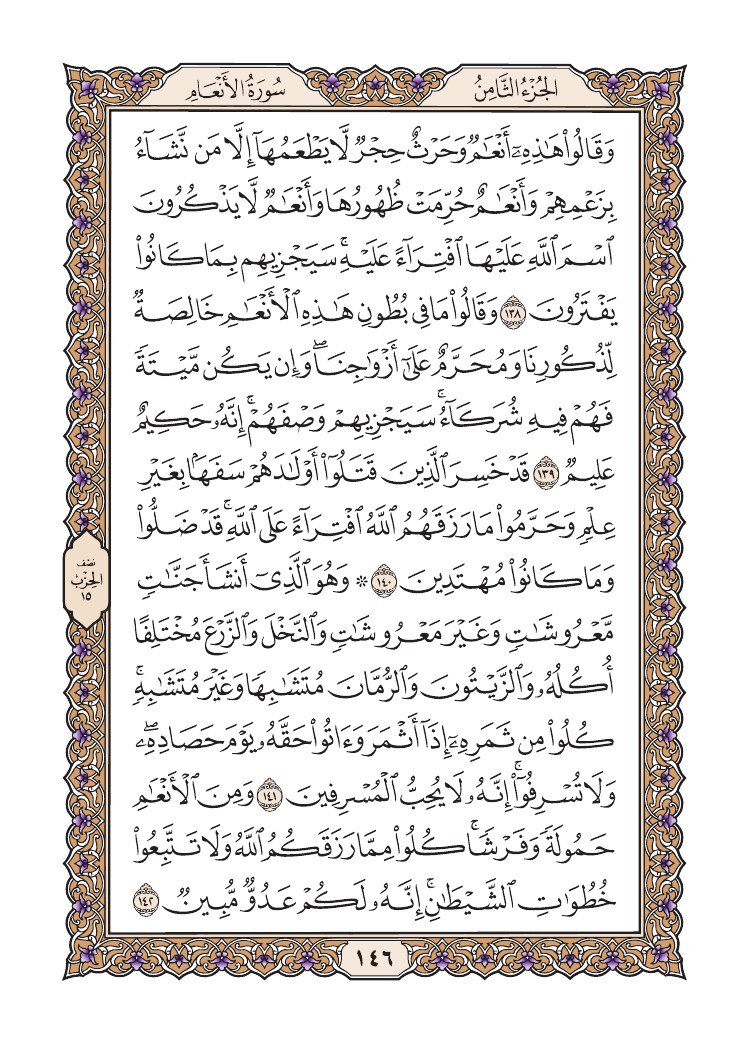 الجُزْءُ الثَّامِنُ
سُورَةُ الأَنْعَامِ
وَقَالُواْ هَٰذِهِۦٓ أَنْعَٰمٞ وَحَرْثٌ حِجْرٞ لَّا يَطْعَمُهَآ إِلَّا مَن نَّشَآءُ
بِزَعْمِهِمْ وَأَنْعَٰمٌ حُرِّمَتْ ظُهُورُهَا وَأَنْعَٰمٞ لَّا يَذْكُرُونَ
ٱسْمَ ٱللَّهِ عَلَيْهَا ٱفْتِرَآءً عَلَيْهِۚ سَيَجْزِيهِم بِمَا كَانُواْ
يَفْتَرُونَ ١٣٨ وَقَالُواْ مَا فِي بُطُونِ هَٰذِهِ ٱلْأَنْعَٰمِ خَالِصَةٞ
لِّذُكُورِنَا وَمُحَرَّمٌ عَلَىٰٓ أَزْوَٰجِنَاۖ وَإِن يَكُن مَّيْتَةٗ
فَهُمْ فِيهِ شُرَكَآءُۚ سَيَجْزِيهِمْ وَصْفَهُمْۚ إِنَّهُۥ حَكِيمٌ
عَلِيمٞ ١٣٩ قَدْ خَسِرَ ٱلَّذِينَ قَتَلُوٓاْ أَوْلَٰدَهُمْ سَفَهَۢا بِغَيْرِ
عِلْمٖ وَحَرَّمُواْ مَا رَزَقَهُمُ ٱللَّهُ ٱفْتِرَآءً عَلَى ٱللَّهِۚ قَدْ ضَلُّواْ
وَمَا كَانُواْ مُهْتَدِينَ ١٤٠ ۞ وَهُوَ ٱلَّذِيٓ أَنشَأَ جَنَّٰتٖ
مَّعْرُوشَٰتٖ وَغَيْرَ مَعْرُوشَٰتٖ وَٱلنَّخْلَ وَٱلزَّرْعَ مُخْتَلِفًا
أُكُلُهُۥ وَٱلزَّيْتُونَ وَٱلرُّمَّانَ مُتَشَٰبِهٗا وَغَيْرَ مُتَشَٰبِهٖۚ
كُلُواْ مِن ثَمَرِهِۦٓ إِذَآ أَثْمَرَ وَءَاتُواْ حَقَّهُۥ يَوْمَ حَصَادِهِۦۖ
وَلَا تُسْرِفُوٓاْۚ إِنَّهُۥ لَا يُحِبُّ ٱلْمُسْرِفِينَ ١٤١ وَمِنَ ٱلْأَنْعَٰمِ
حَمُولَةٗ وَفَرْشٗاۚ كُلُواْ مِمَّا رَزَقَكُمُ ٱللَّهُ وَلَا تَتَّبِعُواْ
خُطُوَٰتِ ٱلشَّيْطَٰنِۚ إِنَّهُۥ لَكُمْ عَدُوّٞ مُّبِينٞ ١٤٢
نصف
الحِزْب
١٥
١٤٦